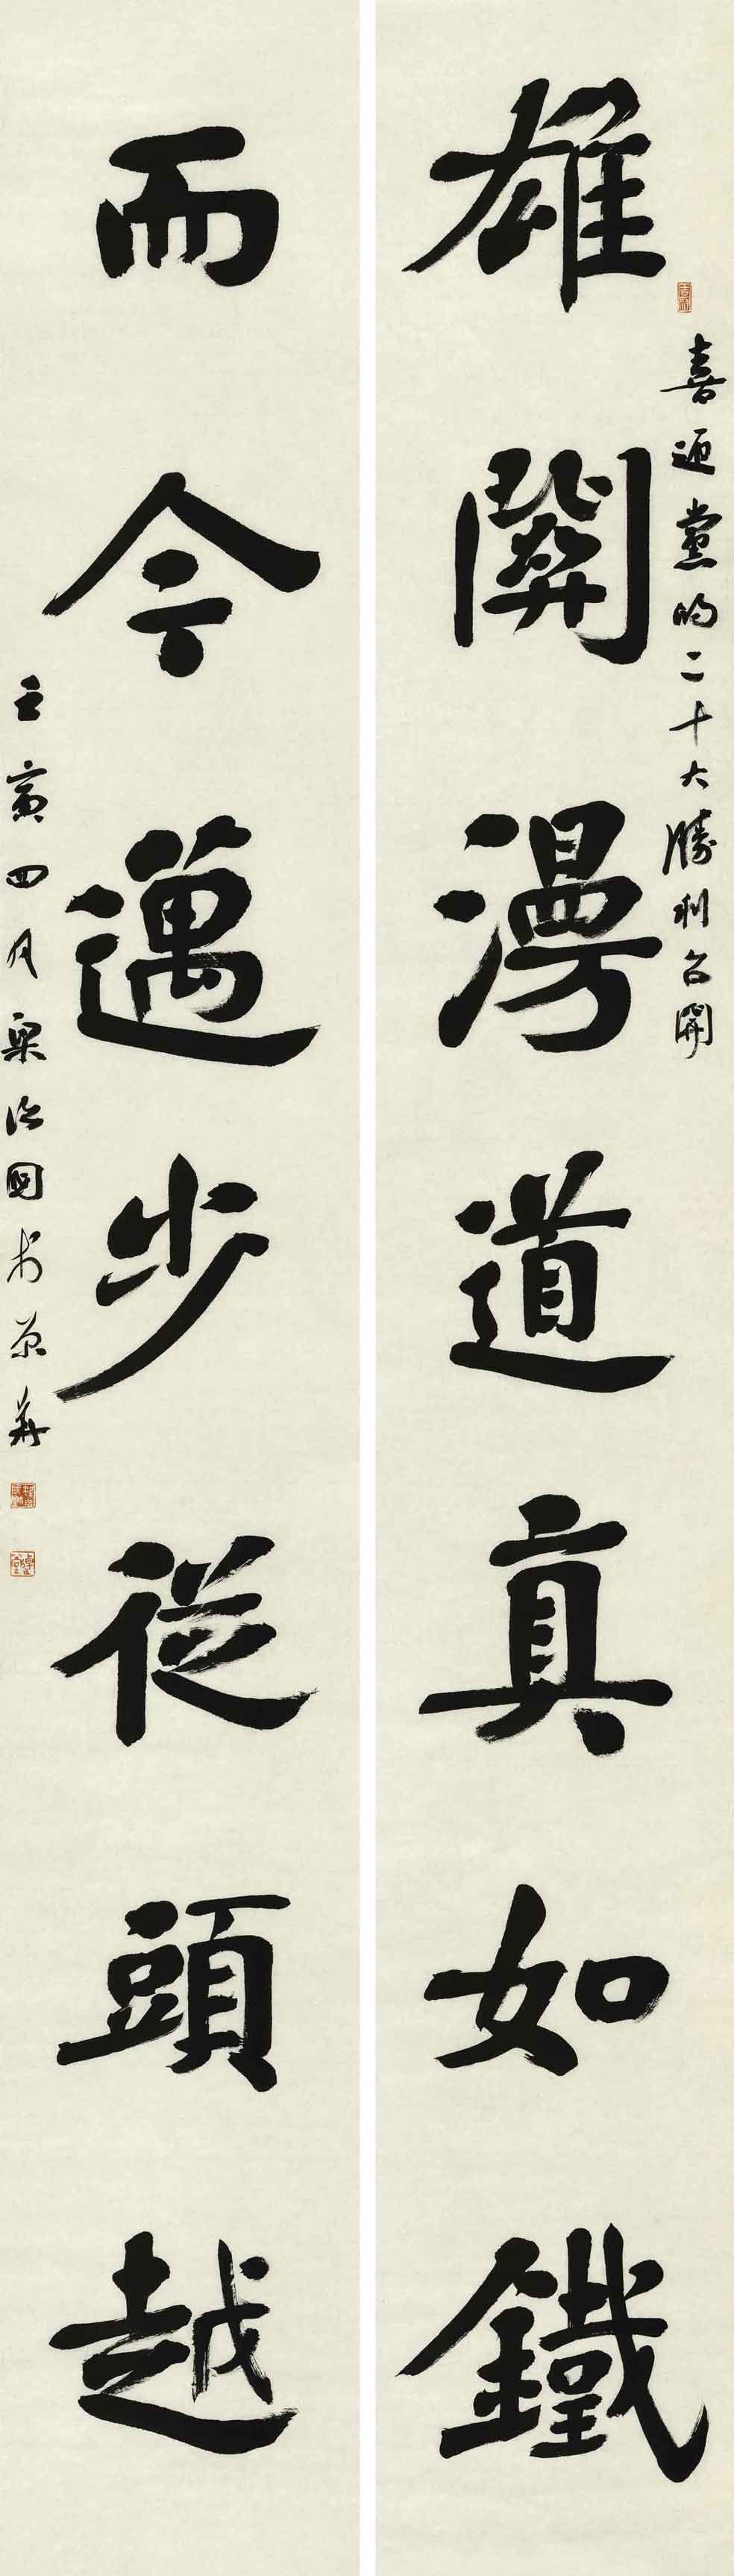 雄關漫道真如鐵
喜迎黨的二十大勝利召開
而今邁步從頭越
壬寅四月治國於京華